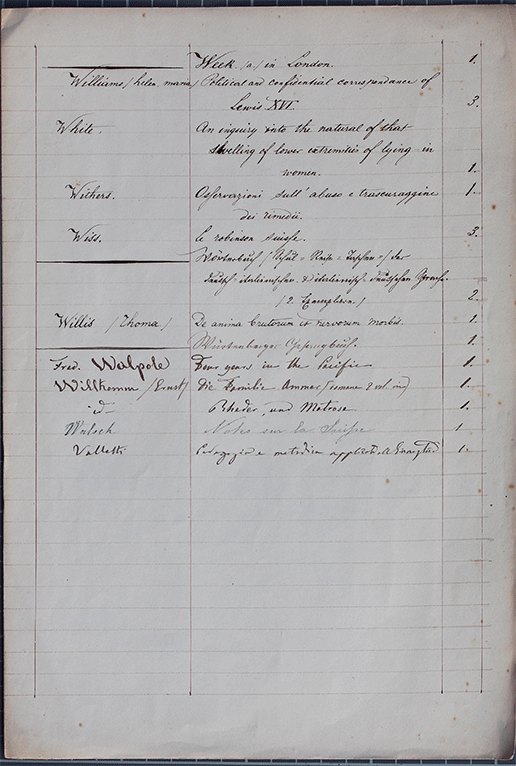 Week /a/ in London. 1.
Williams /helen maria/ Political and confidential correspondance of
Lewis XVI. 3.
White. An inquiry into the natural of that
swelling of lower extremities of lying-in
women. 1.
Withers. Osservazioni sull' abuso e trascuraggine 1.
dei rimedii.
Wiss. le robinson suisse. 3.
Wörterbuch / Schul = Reise = Taschen =/ der
deutsch-italienischen & italienisch-deutschen Sprache.
/2. Exemplaren./ 2.
Willis /Thoma/ De anima brutorum et nervorum morbis. 1.
Würtenberger Gesangbuch. 1.
Fred. Walpole Four years in the Pacific 1.
Willkomm /Ernst/ Die Familie Ammer 1.
id Rheder und Matrose 1.
Notes sur la Suisse 1
metodica 1.